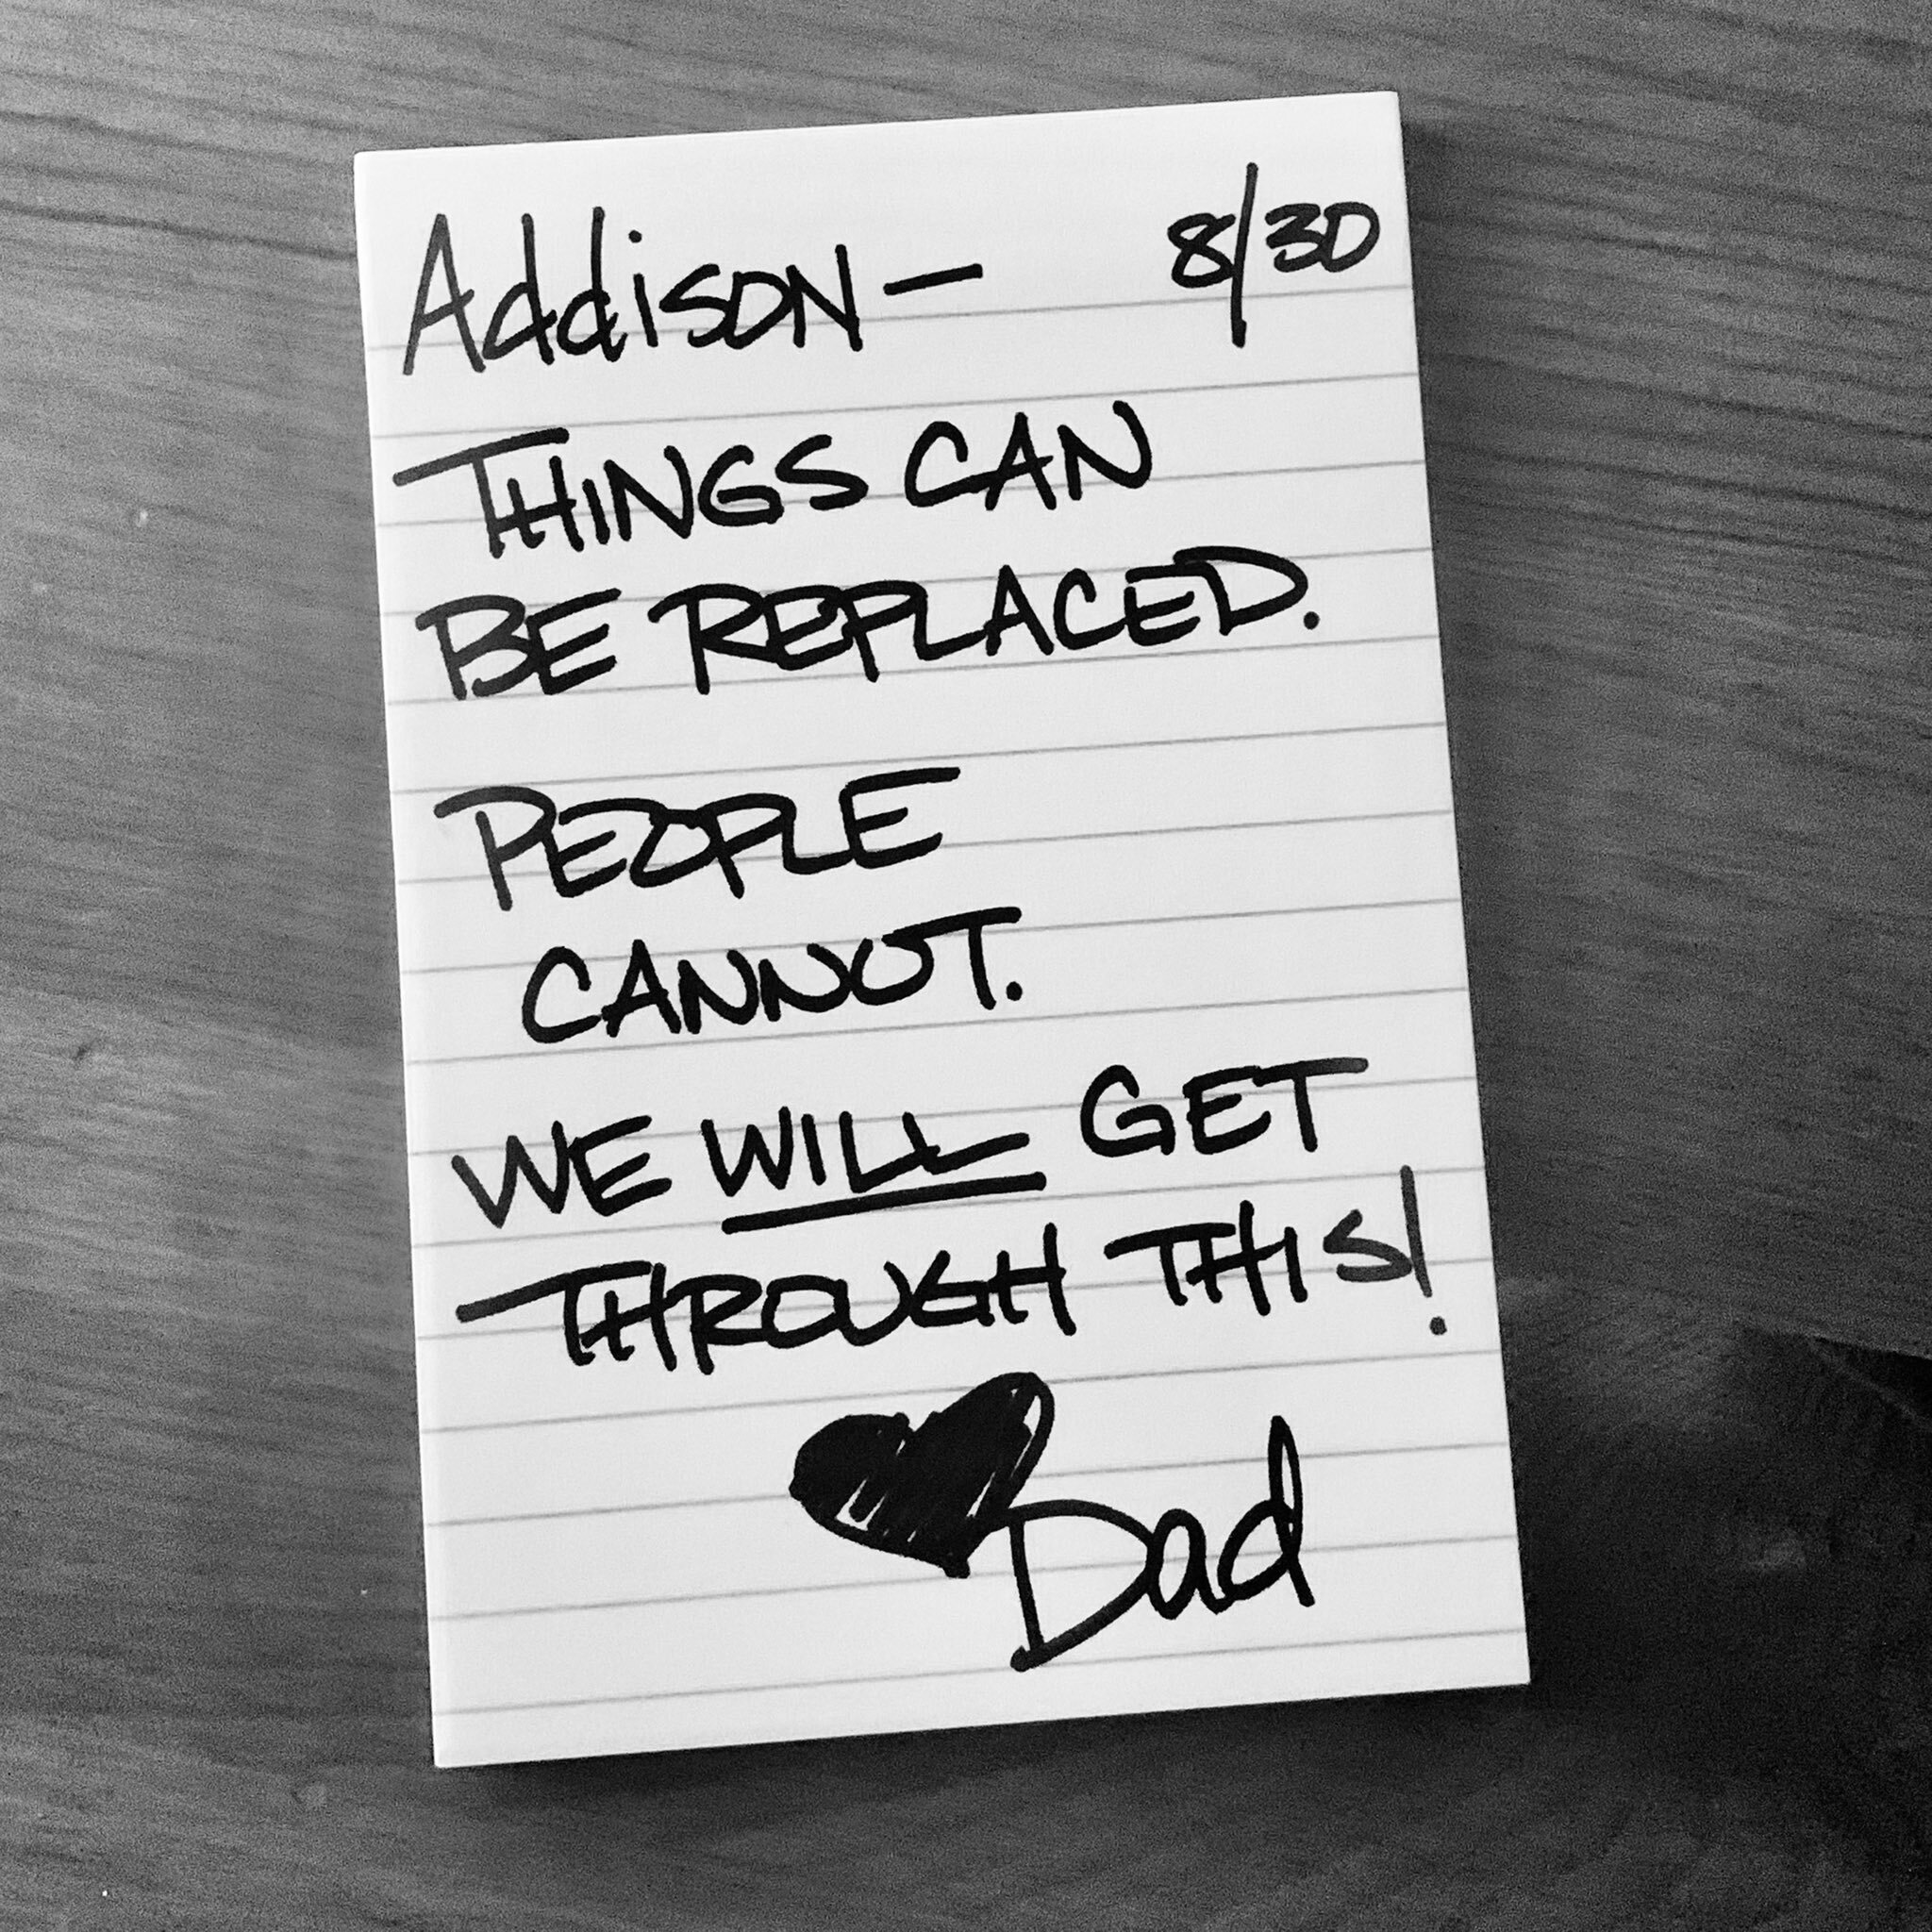 Addison— 8/30
THINGS CAN
BE REPLACED.
PEOPLE
CANNOT.
WE WILL GET
THROUGH THIS!
Dad